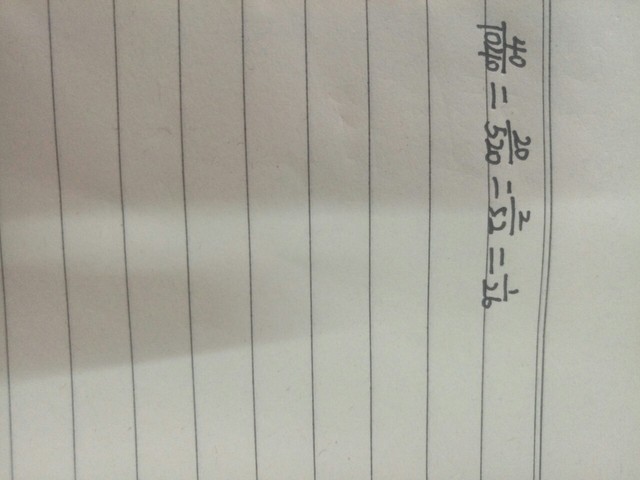 40/1040 = 20/520 = 2/52 = 1/26